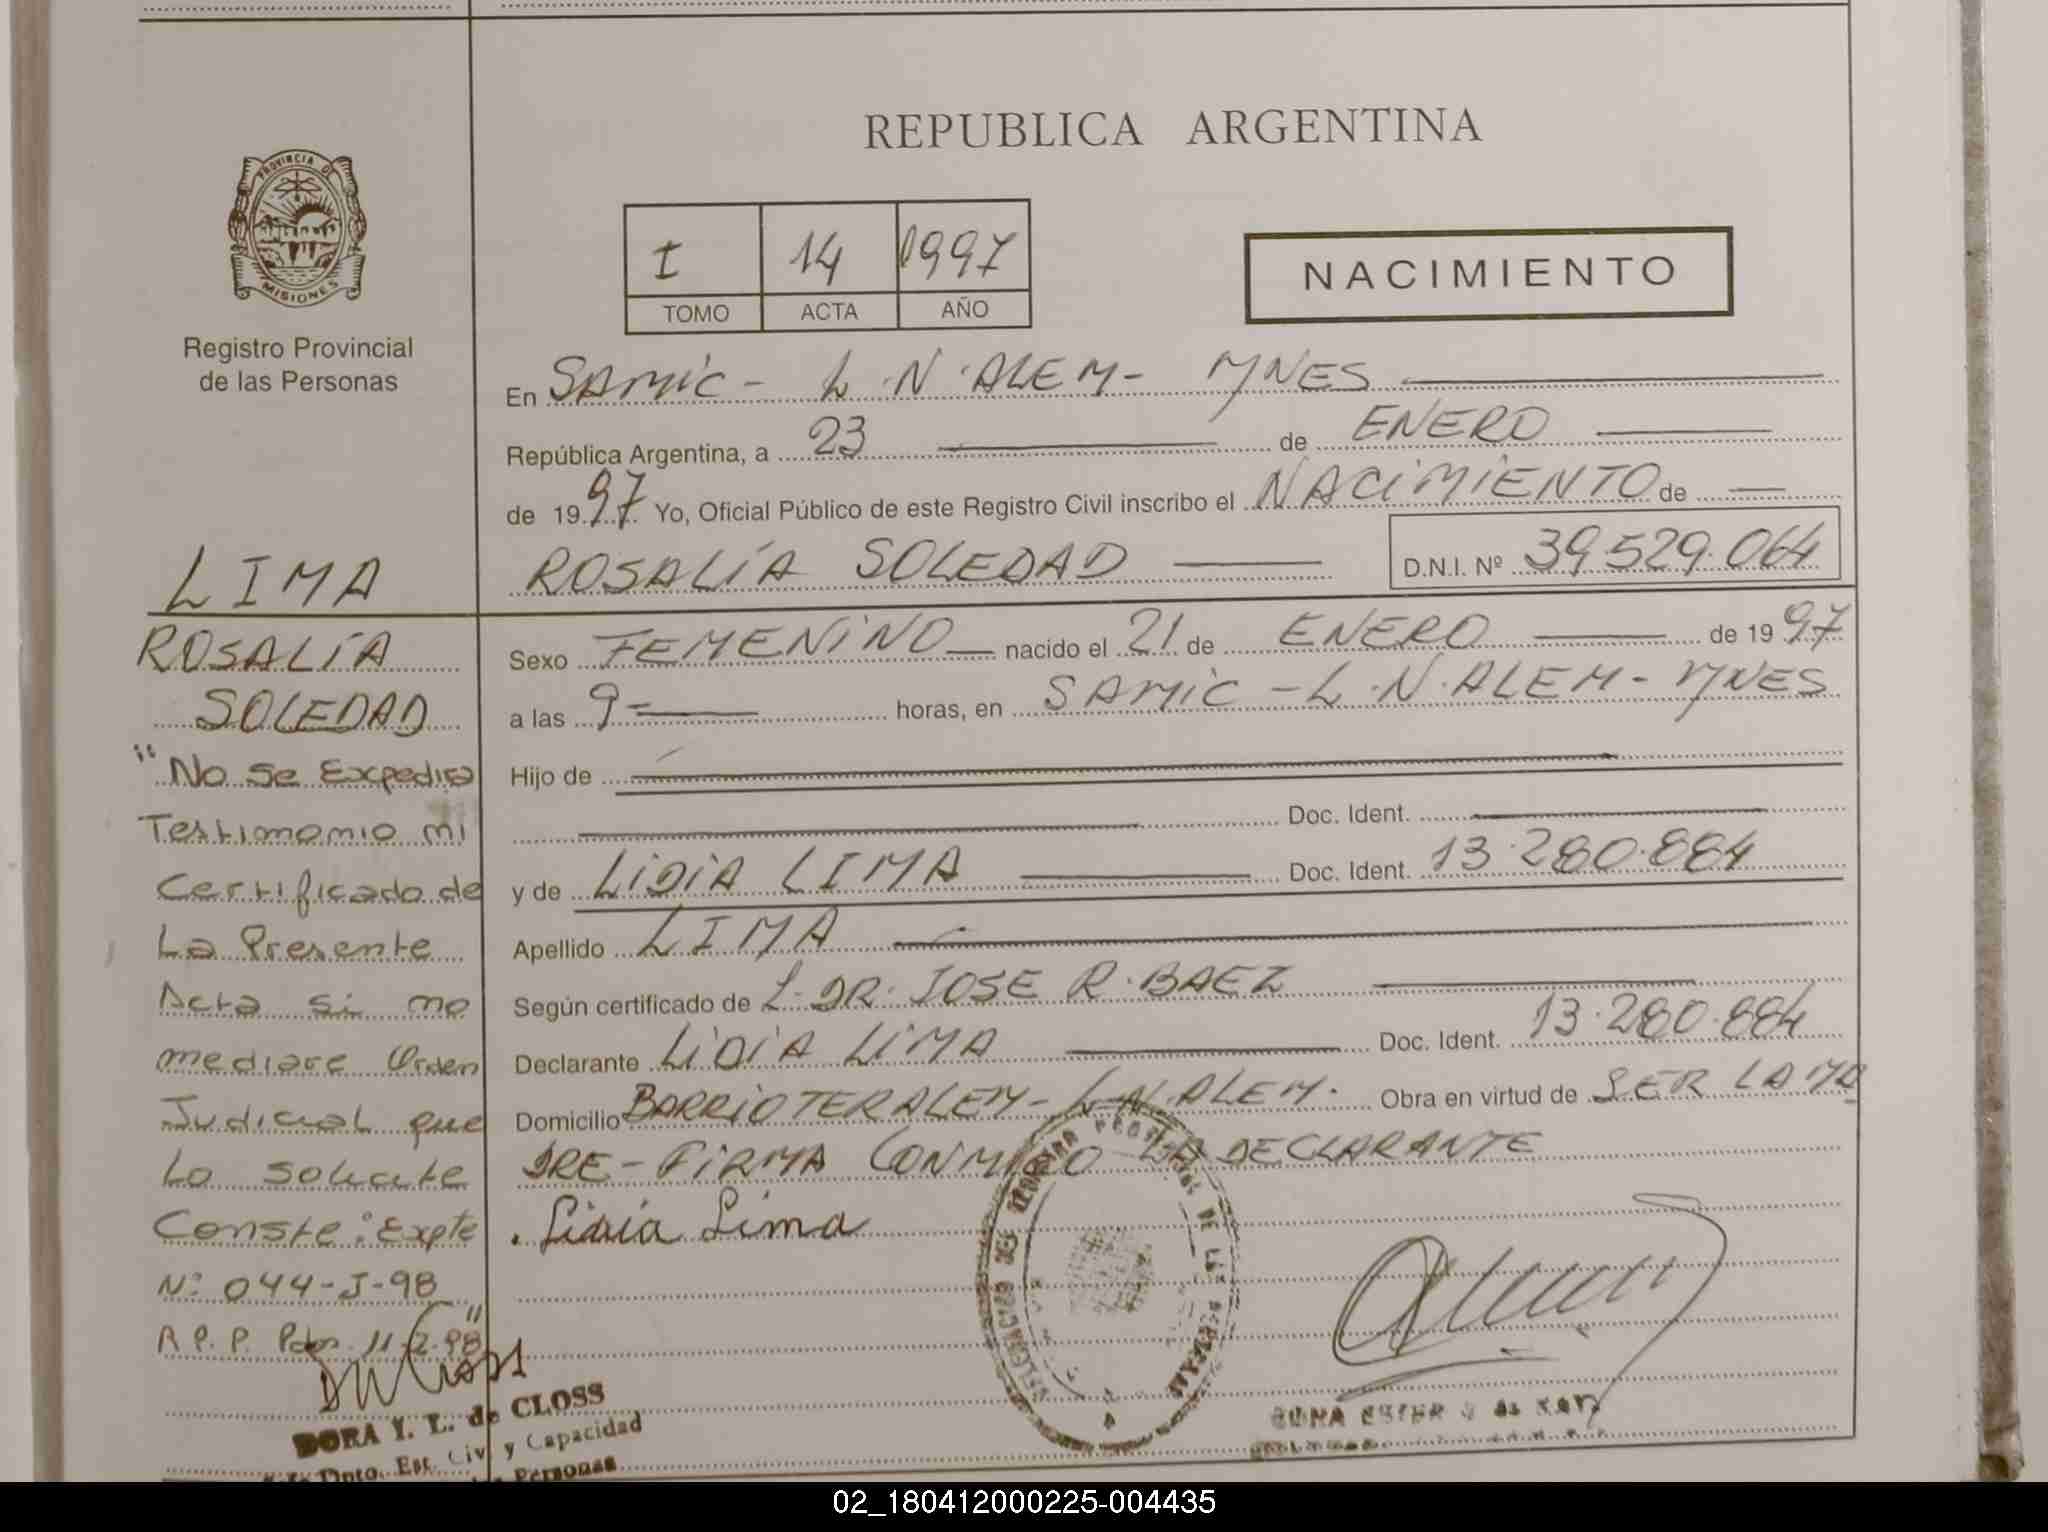 REPUBLICA ARGENTINA
PROVINCIA DE
MISIONES
Registro Provincial
de las Personas
I 14 1997
TOMO ACTA AÑO
NACIMIENTO
En SAMIC - L.N. ALEM - MNES
República Argentina, a 23 de ENERO
de 1997 Yo, Oficial Público de este Registro Civil inscribo el NACIMIENTO de
ROSALÍA SOLEDAD D.N.I. Nº 39.529.064
Sexo FEMENINO nacido el 21 de ENERO de 1997
a las 9- horas, en SAMIC - L.N. ALEM - MNES
Hijo de
Doc. Ident.
y de LIDIA LIMA Doc. Ident. 13.280.884
Apellido LIMA
Según certificado de L. DR. JOSE R. BAEZ
Declarante LIDIA LIMA Doc. Ident. 13.280.884
Domicilio BARRIO TERALEM - L.N. ALEM. Obra en virtud de SER LA MA
DRE - FIRMA CONMIGO LA DECLARANTE
Lidia Lima
LIMA
ROSALÍA
SOLEDAD
"No se Expedira
Testimonio ni
Certificado de
La Presente
Acta si no
mediare Orden
Judicial que
Lo Solicite
Conste: Expte
Nº 044-J-98
R.P.P. Pdas. 11-2-98"
DORA I. L. de CLOSS
Dpto. Est. Civ. y Capacidad
Personas
02_180412000225-004435